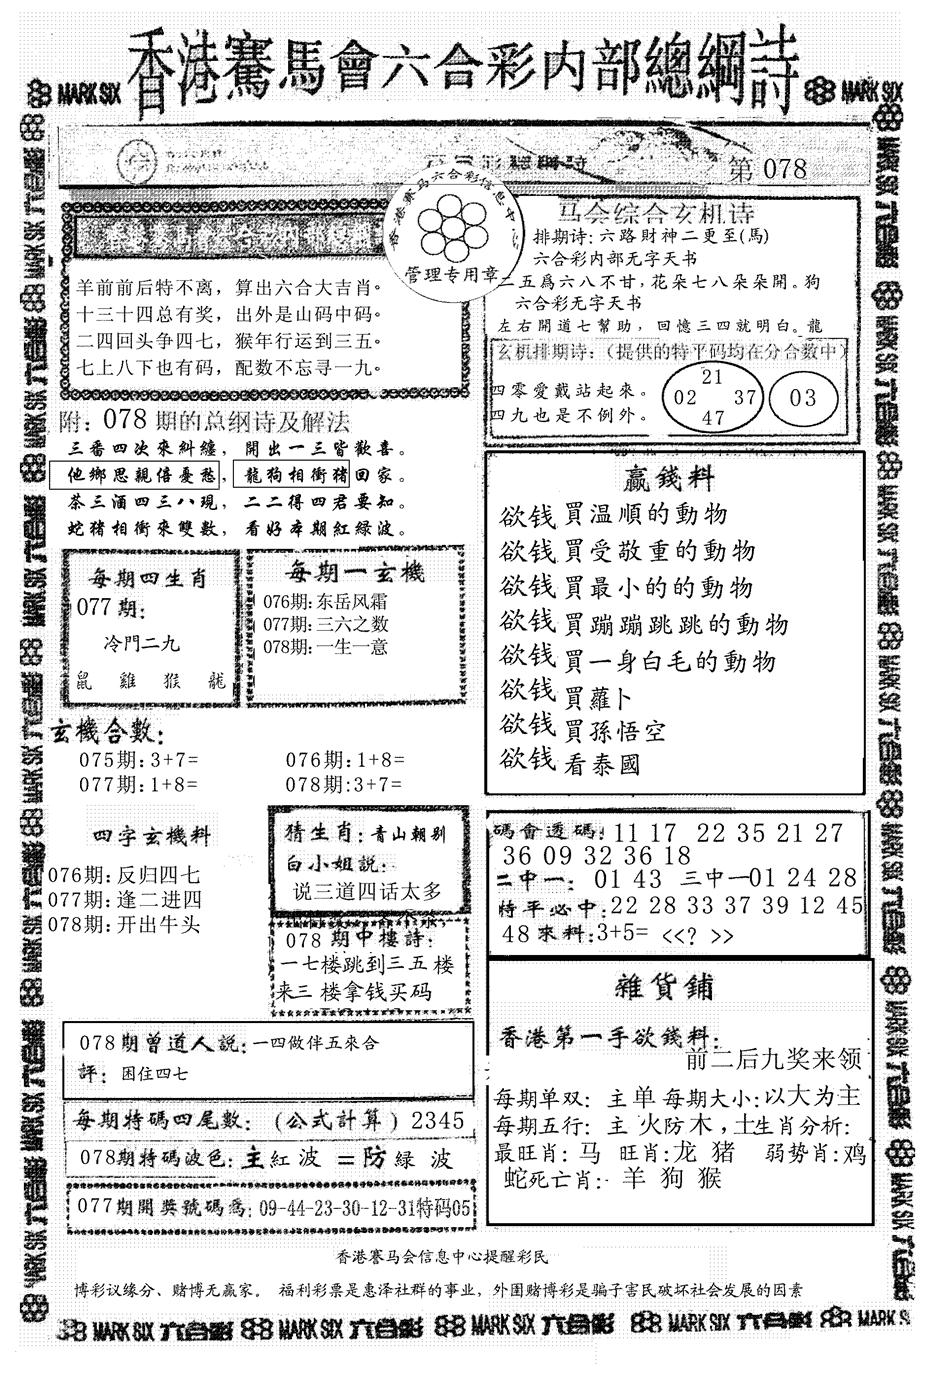 香港賽馬會六合彩内部總綱詩
MARK SIX
第 078
香港赛马六合彩信息中心
管理专用章
羊前前后特不离，算出六合大吉肖。
十三十四总有奖，出外是山码中码。
二四回头争四七，猴年行运到三五。
七上八下也有码，配数不忘寻一九。
马会综合玄机诗
排期诗：六路财神二更至(馬)
六合彩内部无字天书
二五爲六八不甘，花朵七八朵朵開。狗
六合彩无字天书
左右開道七幫助，回憶三四就明白。龍
玄机排期诗：（提供的特平码均在分合数中）
四零愛戴站起來。
四九也是不例外。
21
02 37
47
03
附：078期的总纲诗及解法
三番四次來糾纏，開出一三皆歡喜。
他鄉思親倍憂愁，龍狗相衝猪回家。
茶三酒四三八現，二二得四君要知。
蛇猪相衝來雙數，看好本期紅绿波。
每期四生肖
077期：
冷門二九
鼠 雞 猴 龍
每期一玄機
076期：东岳风霜
077期：三六之数
078期：一生一意
玄機合數：
075期：3+7= 076期：1+8=
077期：1+8= 078期：3+7=
四字玄機料
076期：反归四七
077期：逢二进四
078期：开出牛头
猜生肖：青山朝别
白小姐説：
说三道四话太多
078期中樓詩：
一七楼跳到三五楼
来三楼拿钱买码
赢錢料
欲钱買温順的動物
欲钱買受敬重的動物
欲钱買最小的的動物
欲钱買蹦蹦跳跳的動物
欲钱買一身白毛的動物
欲钱買蘿卜
欲钱買孫悟空
欲钱看泰國
碼會透碼：11 17 22 35 21 27
36 09 32 36 18
二中一：01 43 三中一01 24 28
特平必中：22 28 33 37 39 12 45
48來料：3+5= <<? >>
雜貨鋪
香港第一手欲錢料：
前二后九奖来领
每期单双：主单 每期大小：以大为主
每期五行：主 火防木，土生肖分析：
最旺肖：马 旺肖：龙 猪 弱势肖：鸡
蛇死亡肖：羊 狗 猴
078期曾道人説：一四做伴五來合
評：困住四七
每期特碼四尾數：(公式計算) 2345
078期特碼波色：主紅波=防緑波
077期開獎號碼爲：09-44-23-30-12-31特码05
香港賽马会信息中心提醒彩民
博彩议缘分、赌博无赢家。 福利彩票是惠泽社群的事业，外围赌博彩是骗子害民破坏社会发展的因素
MARK SIX 六合彩 MARK SIX 六合彩 MARK SIX 六合彩 MARK SIX 六合彩 MARK SIX